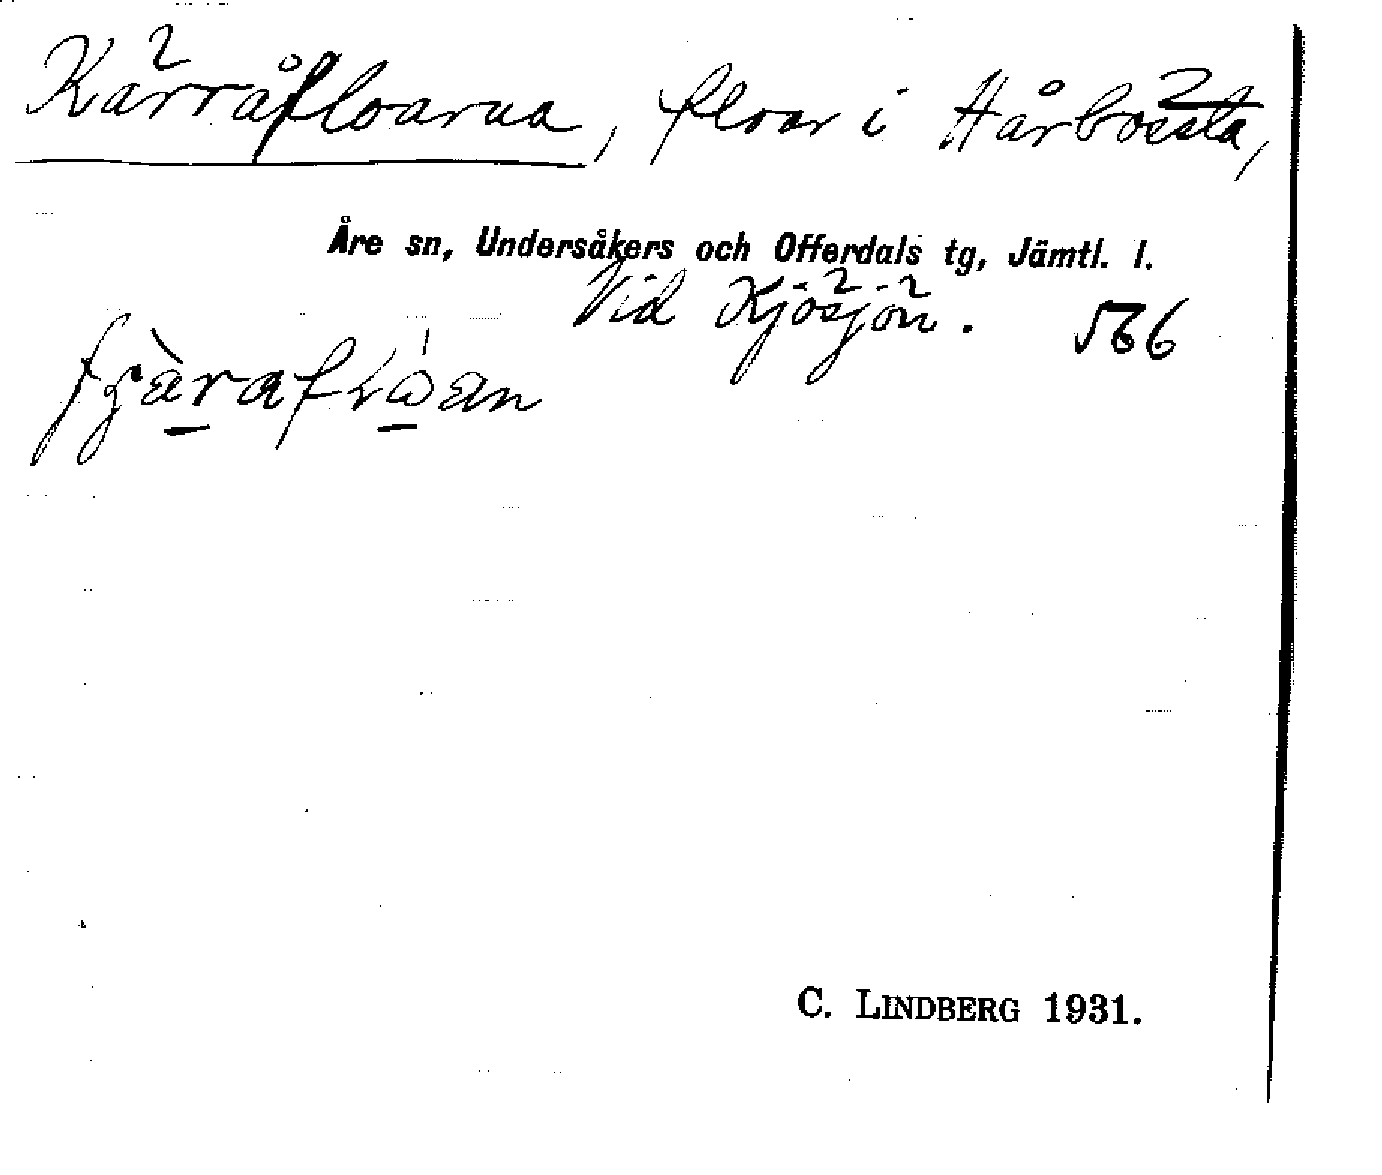 Kärråfloarna, floar i Hårbörsta,
Åre sn, Undersåkers och Offerdals tg, Jämtl. l.
Vid Kjösjön. 566
C. LINDBERG 1931.